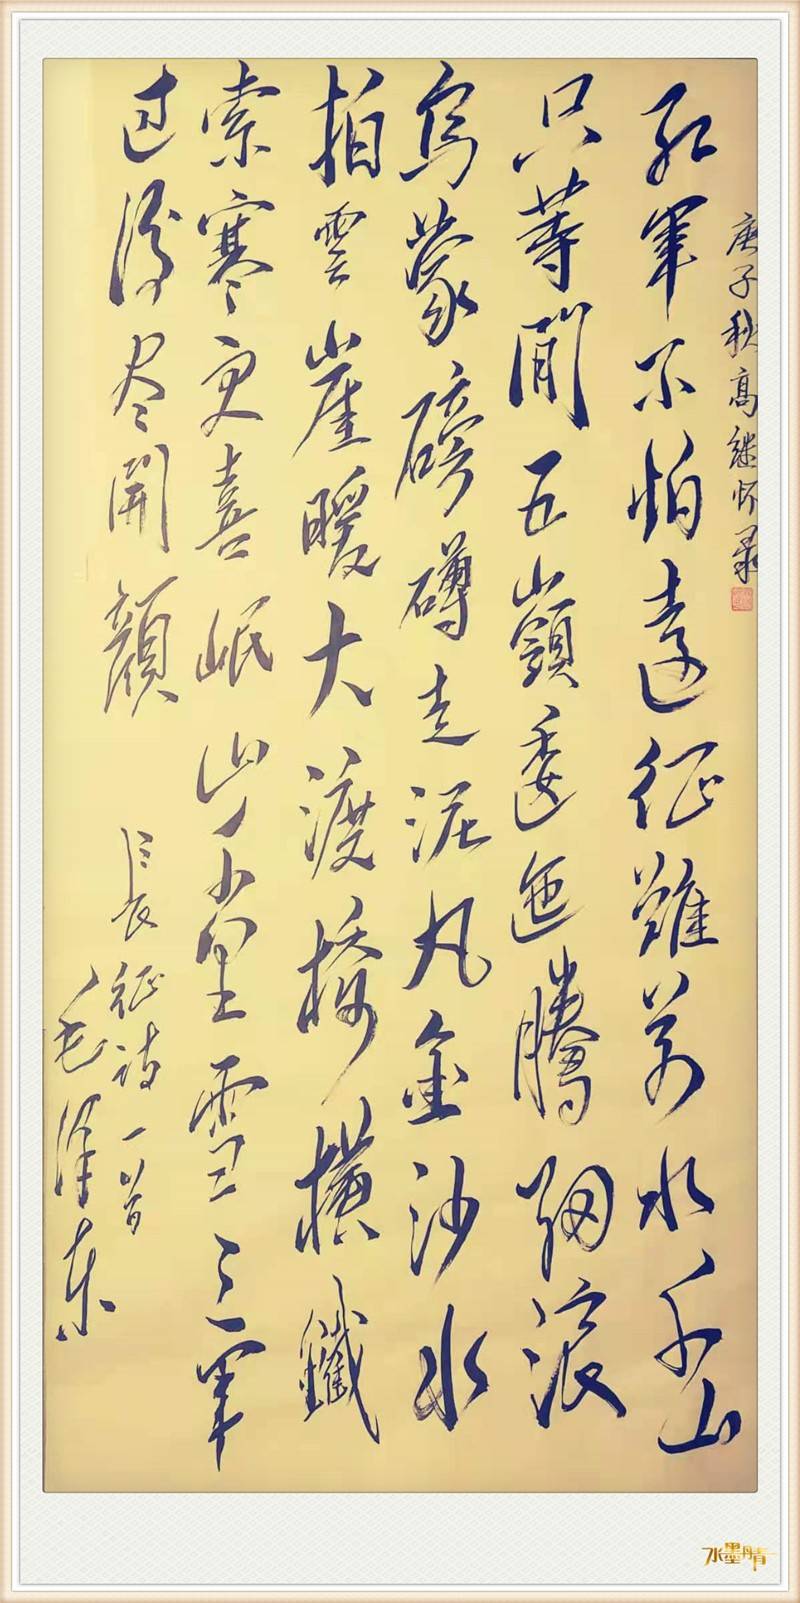 庚子秋高继怀录
红軍不怕遠征難萬水千山
只等閒五嶺逶迤騰細浪
烏蒙磅礴走泥丸金沙水
拍雲崖暖大渡橋橫鐵
索寒更喜岷山千里雪三軍
过後尽開顏
長征诗一首
毛泽东
水墨丹青